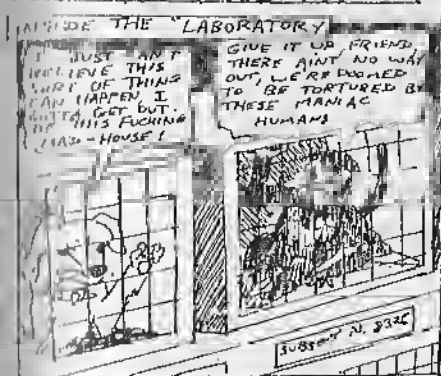 INSIDE THE "LABORATORY
I JUST CAN'T
BELIEVE THIS
SORT OF THING
CAN HAPPEN, I
GOTTA GET OUT
OF THIS FUCKING
MAD-HOUSE!
GIVE IT UP FRIEND,
THERE AINT NO WAY
OUT, WE'RE DOOMED
TO BE TORTURED BY
THESE MANIAC
HUMANS
SUBJECT N. 8326